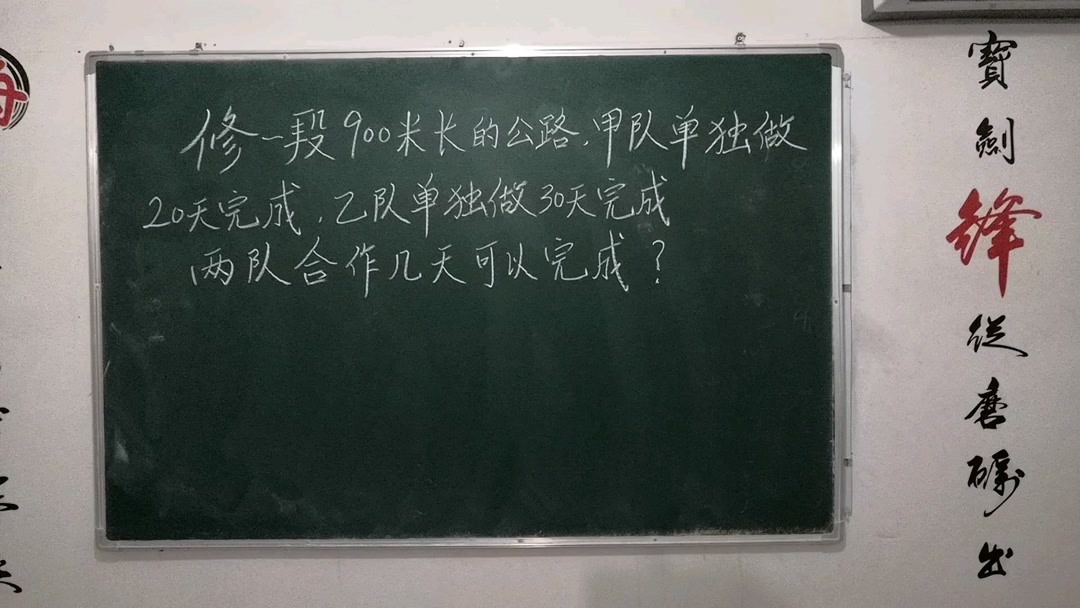 修一段900米长的公路,甲队单独做
20天完成,乙队单独做30天完成
两队合作几天可以完成?
寶劍鋒從磨礪出